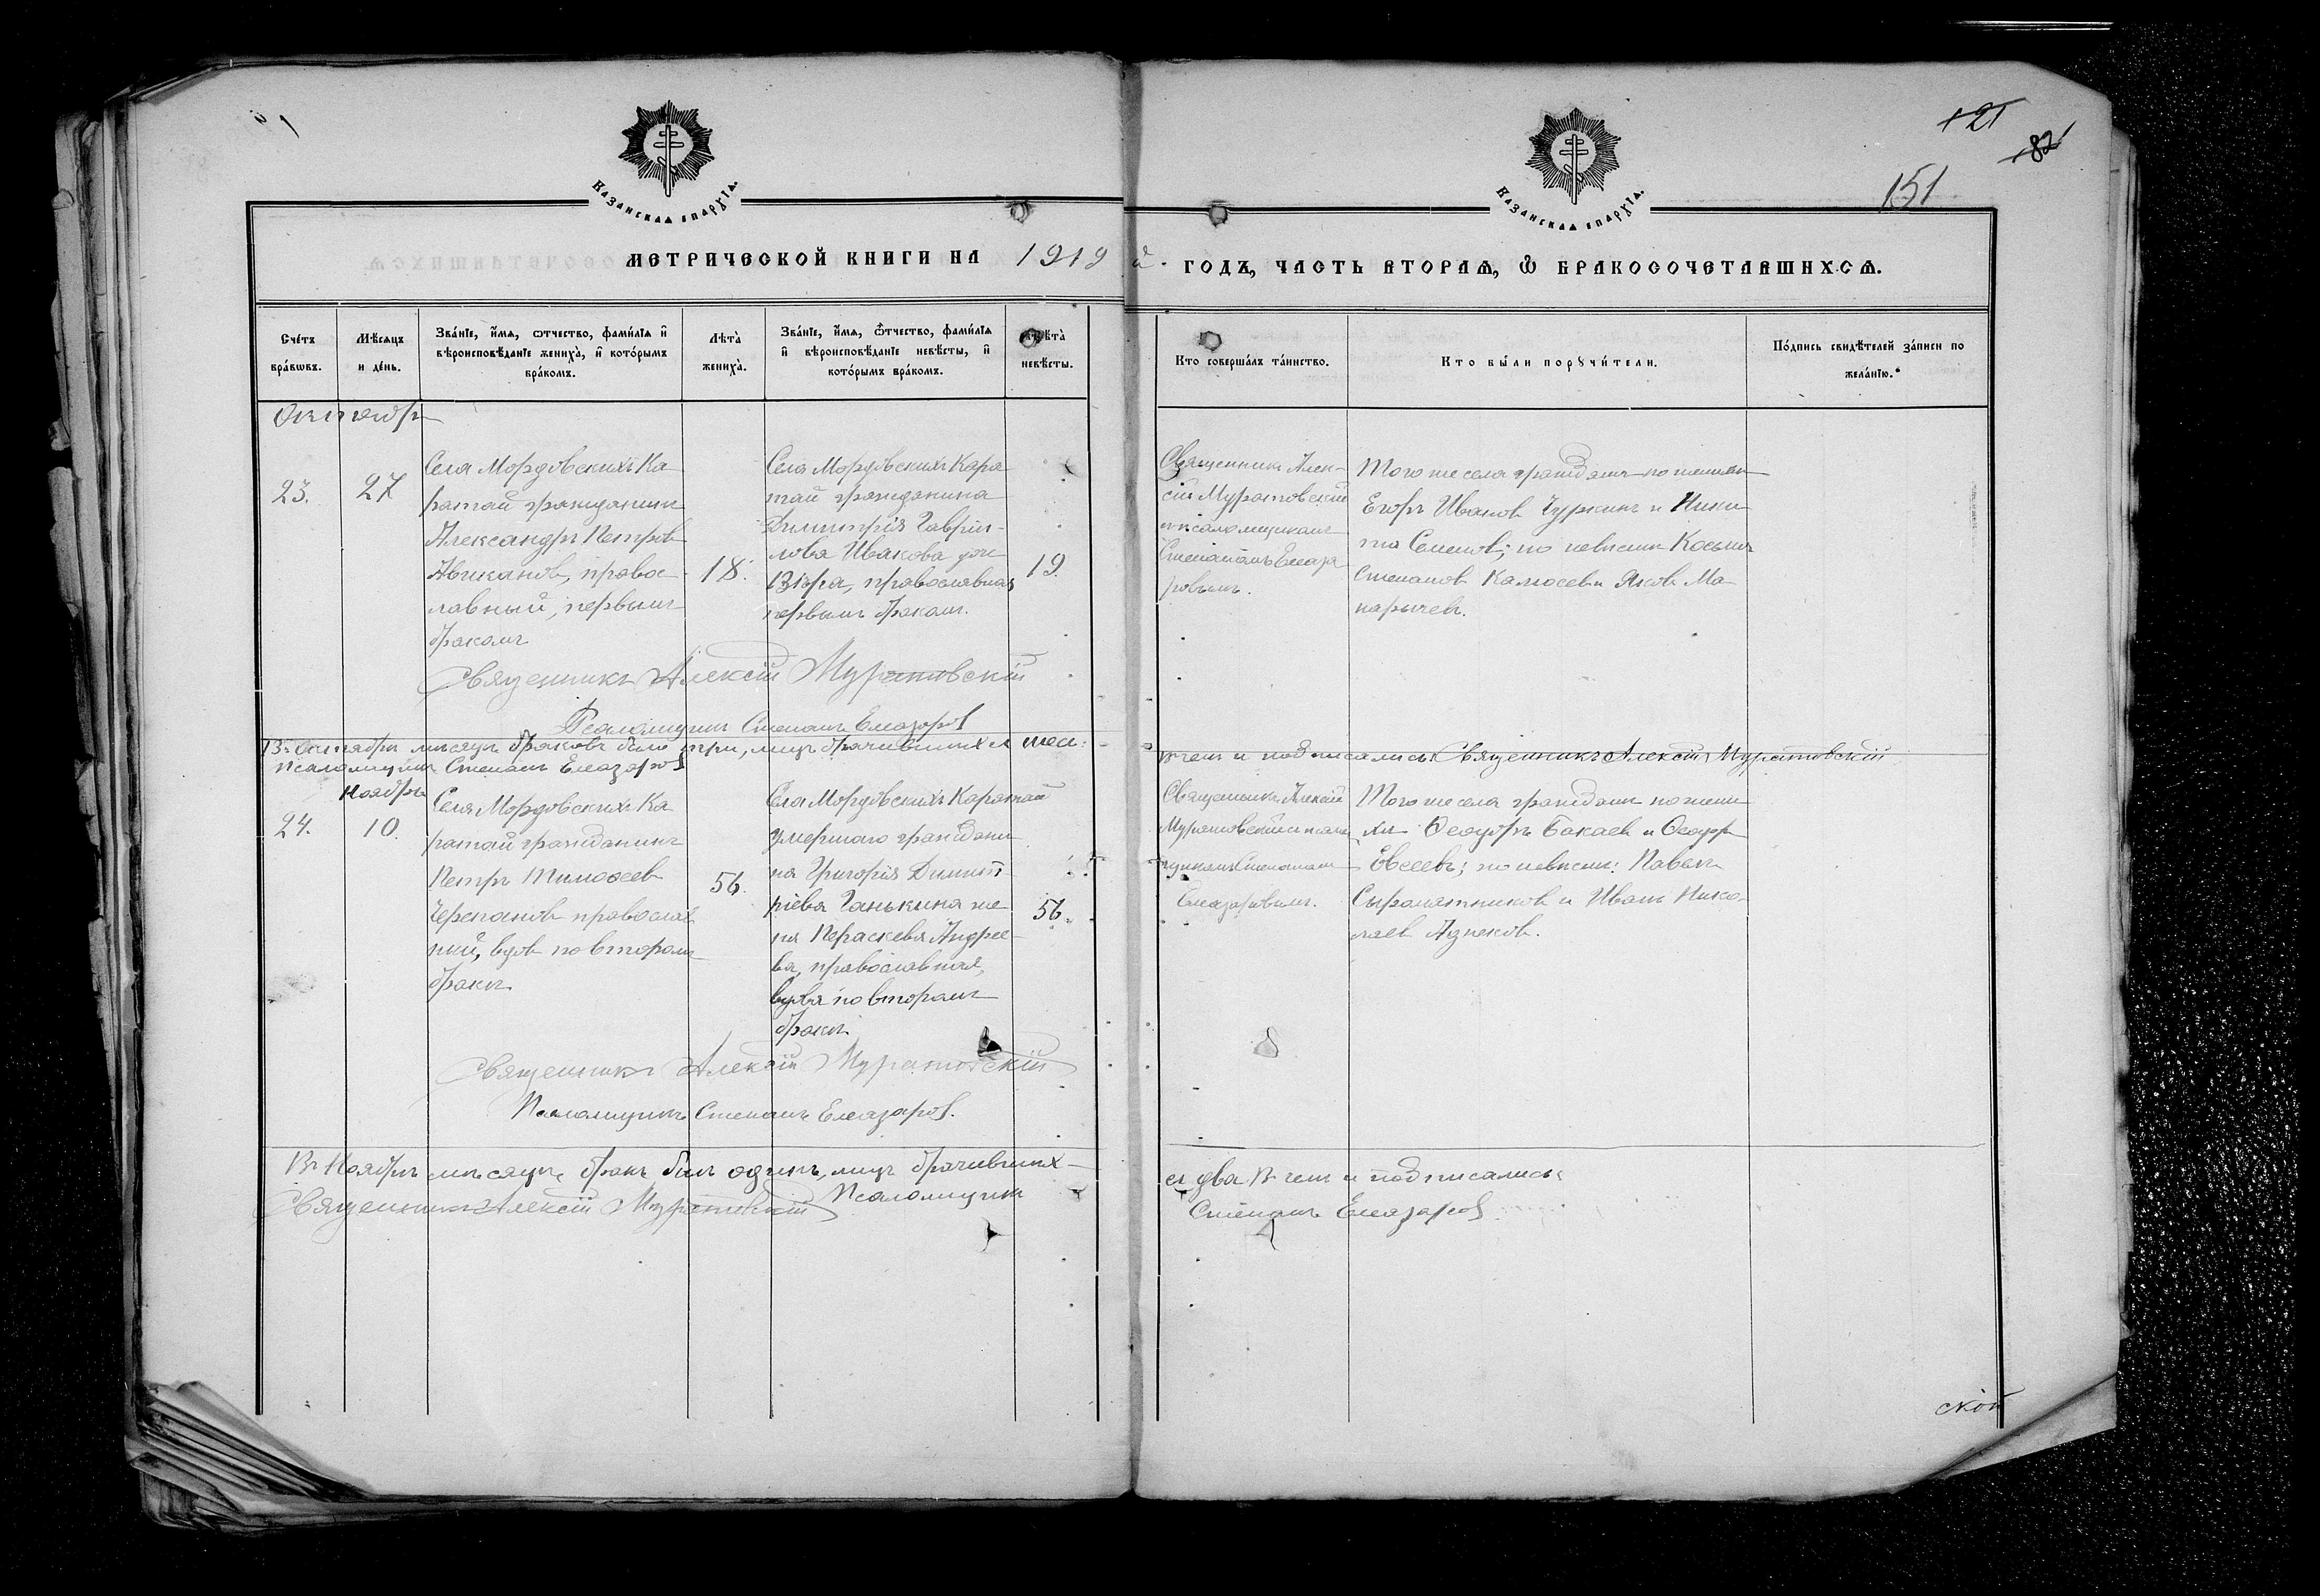 Казанская епархїа.
Казанская епархїа.
121
82
151
МЕТРИЧЕСКОЙ КНИГИ НА 1919 й
ГОДЪ, ЧАСТЬ ВТОРАѦ, Ѿ БРАКОСОЧЕТАВШИХСѦ.
Счетъ браковъ.
Мѣсяцъ и день.
Званїе, имя, отчество, фамилїя и вѣроисповѣданїе жениха, и которымъ бракомъ.
Лѣта жениха.
Званїе, имя, отчество, фамилїя и вѣроисповѣданїе невѣсты, и которымъ бракомъ.
Лѣта невѣсты.
Кто совершалъ таинство.
Кто были поручители.
Подпись свидѣтелей записи по желанїю.
Октябрь
23.
27
Села Мордовскихъ Ка
ратай гражданинъ
Александръ Петровъ
православный, первымъ
бракомъ
18.
Села Мордовскихъ Кара
тай гражданина
Димитрія Гаврiи-
лова Ивакова дочь
Вѣра, православная
первымъ бракомъ.
19.
Священникъ Алек-
сій Муратовскій
и псаломщикомъ
Степаномъ Елеаза
ровымъ.
Того же села граждане по женихѣ
Егоръ Ивановъ Чуркинъ и Ники-
та Семеновъ; по невѣстѣ Косьма
Степановъ и Яковъ Ма-
карычевъ.
Священникъ Алексій Муратовскій
Псаломщикъ Степанъ Елеазаровъ
Въ Октябрѣ мѣсяцѣ браковъ было три, лицъ брачившихся шесть
въ чемъ и подписались: Священникъ Алексій Муратовскій
Псаломщикъ Степанъ Елеазаровъ
Ноябрь
24.
10.
Села Мордовскихъ Ка
ратай гражданинъ
Петръ Тимофеевъ
Черепановъ православ
ный, вдовъ по второмъ
бракѣ
56.
Села Мордовскихъ Каратай
умершаго граждани
на Григорія Димит
ріева Ганькина же
на Параскева Андрее-
ва, православная,
вдова по второмъ
бракѣ.
56.
Священникъ Алексій
Муратовскій и псалом
щикомъ Степаномъ
Елеазаровымъ.
Того же села граждане по жени
хѣ Ѳеодоръ Бакаевъ и Ѳеодоръ
Евсеевъ; по невѣстѣ: Павелъ
Сыромятниковъ и Иванъ Нико-
лаевъ Азнековъ.
Священникъ Алексій Муратовскій
Псаломщикъ Степанъ Елеазаровъ.
Въ Ноябрѣ мѣсяцѣ бракъ былъ одинъ, лицъ брачивших-
ся два въ чемъ и подписались:
Священникъ Алексій Муратовскій Псаломщикъ
Степанъ Елеазаровъ
ской